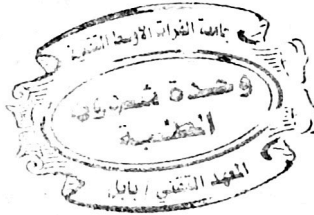 جامعة الفرات الأوسط التقنية
وحدة شؤون
الطلبة
المعهد التقني / بابل